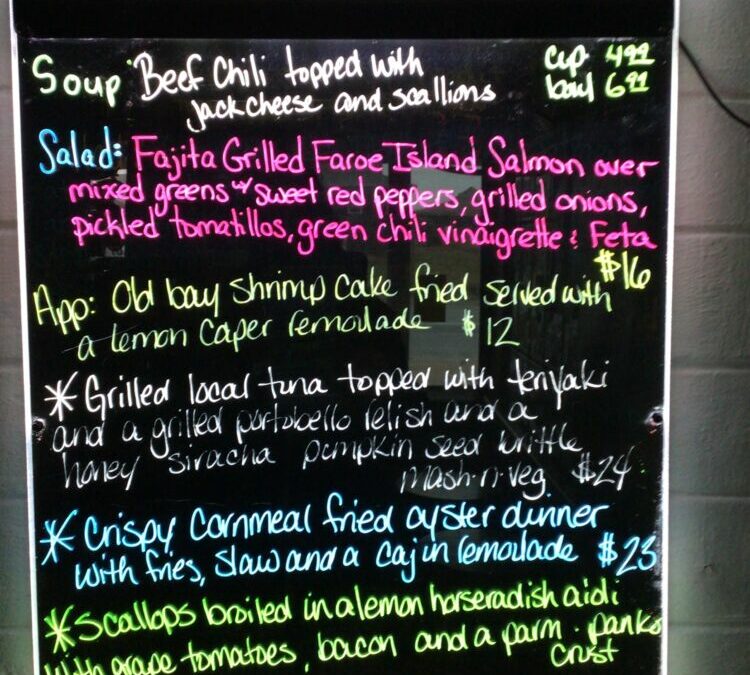 Soup Beef Chili topped with cup 4.99
jack cheese and scallions bowl 6.99
Salad: Fajita Grilled Faroe Island Salmon over
mixed greens w/ sweet red peppers, grilled onions,
pickled tomatillos, green chili vinaigrette & Feta
$16
App: Old bay shrimp cake fried served with
a lemon caper remoulade $12
* Grilled local tuna topped with teriyaki
and a grilled portobello relish and a
honey siracha pumpkin seed brittle
mash-n-veg $24
* Crispy Cornmeal fried oyster dinner
with fries, slaw and a cajin remoulade $23
* Scallops broiled in a lemon horseradish aioli
with grape tomatoes, bacon and a parm. panko
crust